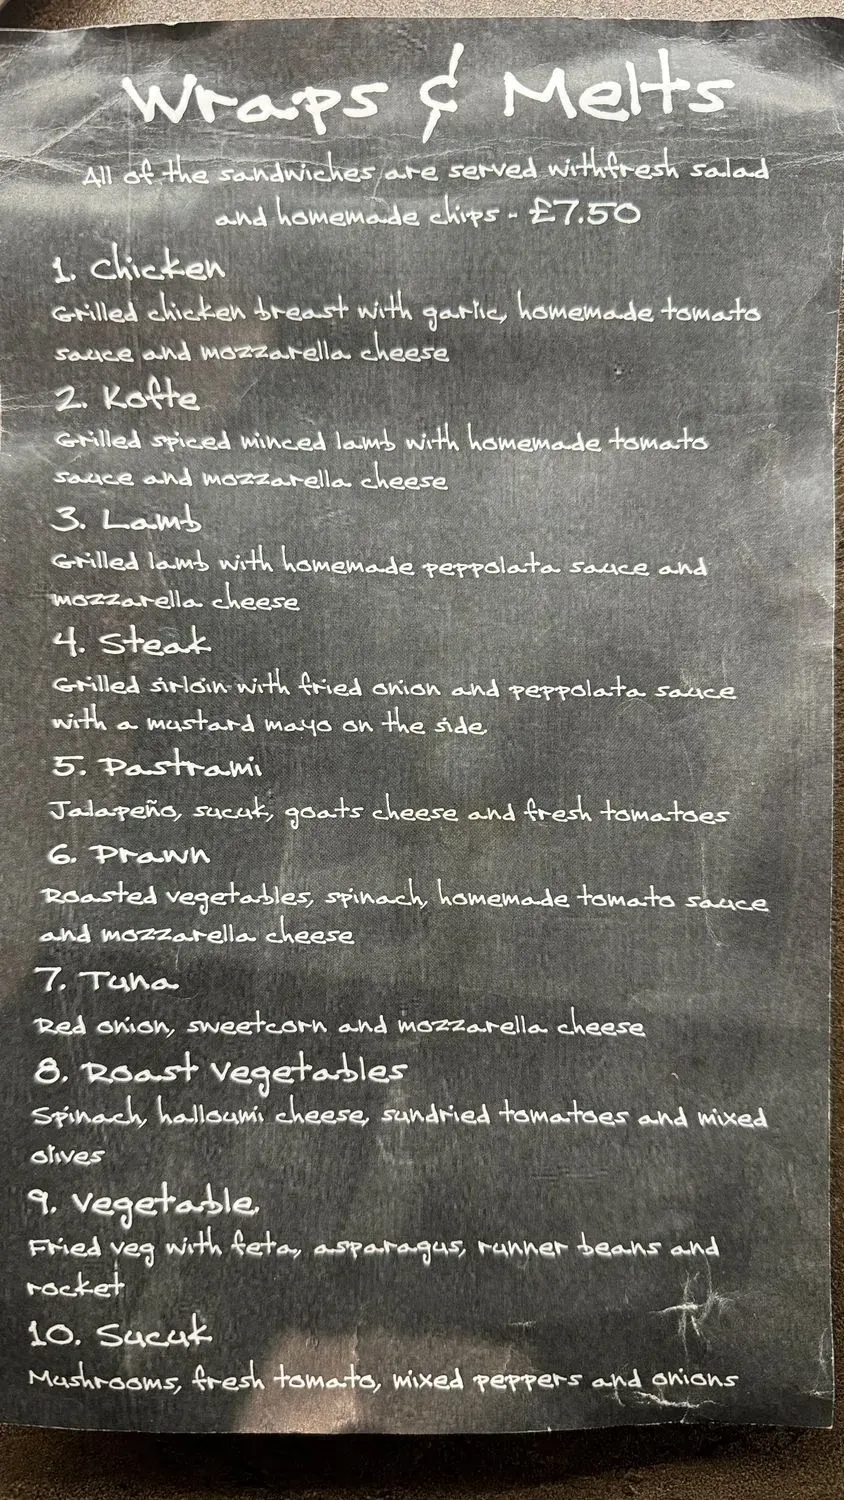 Wraps & Melts
All of the sandwiches are served withfresh salad
and homemade chips - £7.50
1. Chicken
Grilled chicken breast with garlic, homemade tomato
sauce and mozzarella cheese
2. Kofte
Grilled spiced minced lamb with homemade tomato
sauce and mozzarella cheese
3. Lamb
Grilled lamb with homemade peppolata sauce and
mozzarella cheese
4. Steak
Grilled sirloin with fried onion and peppolata sauce
with a mustard mayo on the side.
5. Pastrami
Jalapeño, sucuk, goats cheese and fresh tomatoes
6. Prawn
Roasted vegetables, spinach, homemade tomato sauce
and mozzarella cheese
7. Tuna
Red onion, sweetcorn and mozzarella cheese
8. Roast Vegetables
Spinach, halloumi cheese, sundried tomatoes and mixed
olives
9. Vegetable.
Fried veg with feta, asparagus, runner beans and
rocket
10. Sucuk
Mushrooms, fresh tomato, mixed peppers and onions